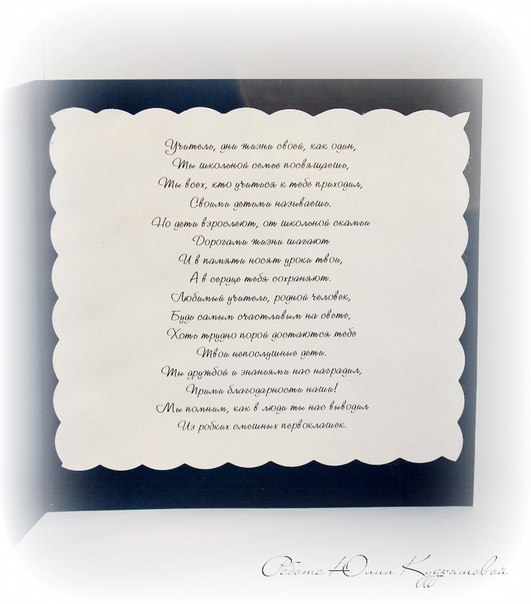 Учитель, дни жизни своей, как один,
Ты школьной семье посвящаешь,
Ты всех, кто учиться к тебе приходил,
Своими детьми называешь.
Но дети взрослеют, от школьной скамьи
Дорогами жизни шагают
И в памяти носят уроки твои,
А в сердце тебя сохраняют.
Любимый учитель, родной человек,
Будь самым счастливым на свете,
Хоть трудно порой достаются тебе
Твои непослушные дети.
Ты дружбой и знаньями нас наградил,
Прими благодарности наши!
Мы помним, как в люди ты нас выводил
Из робких смешных первоклашек.
Работа Юлии Кудряшовой